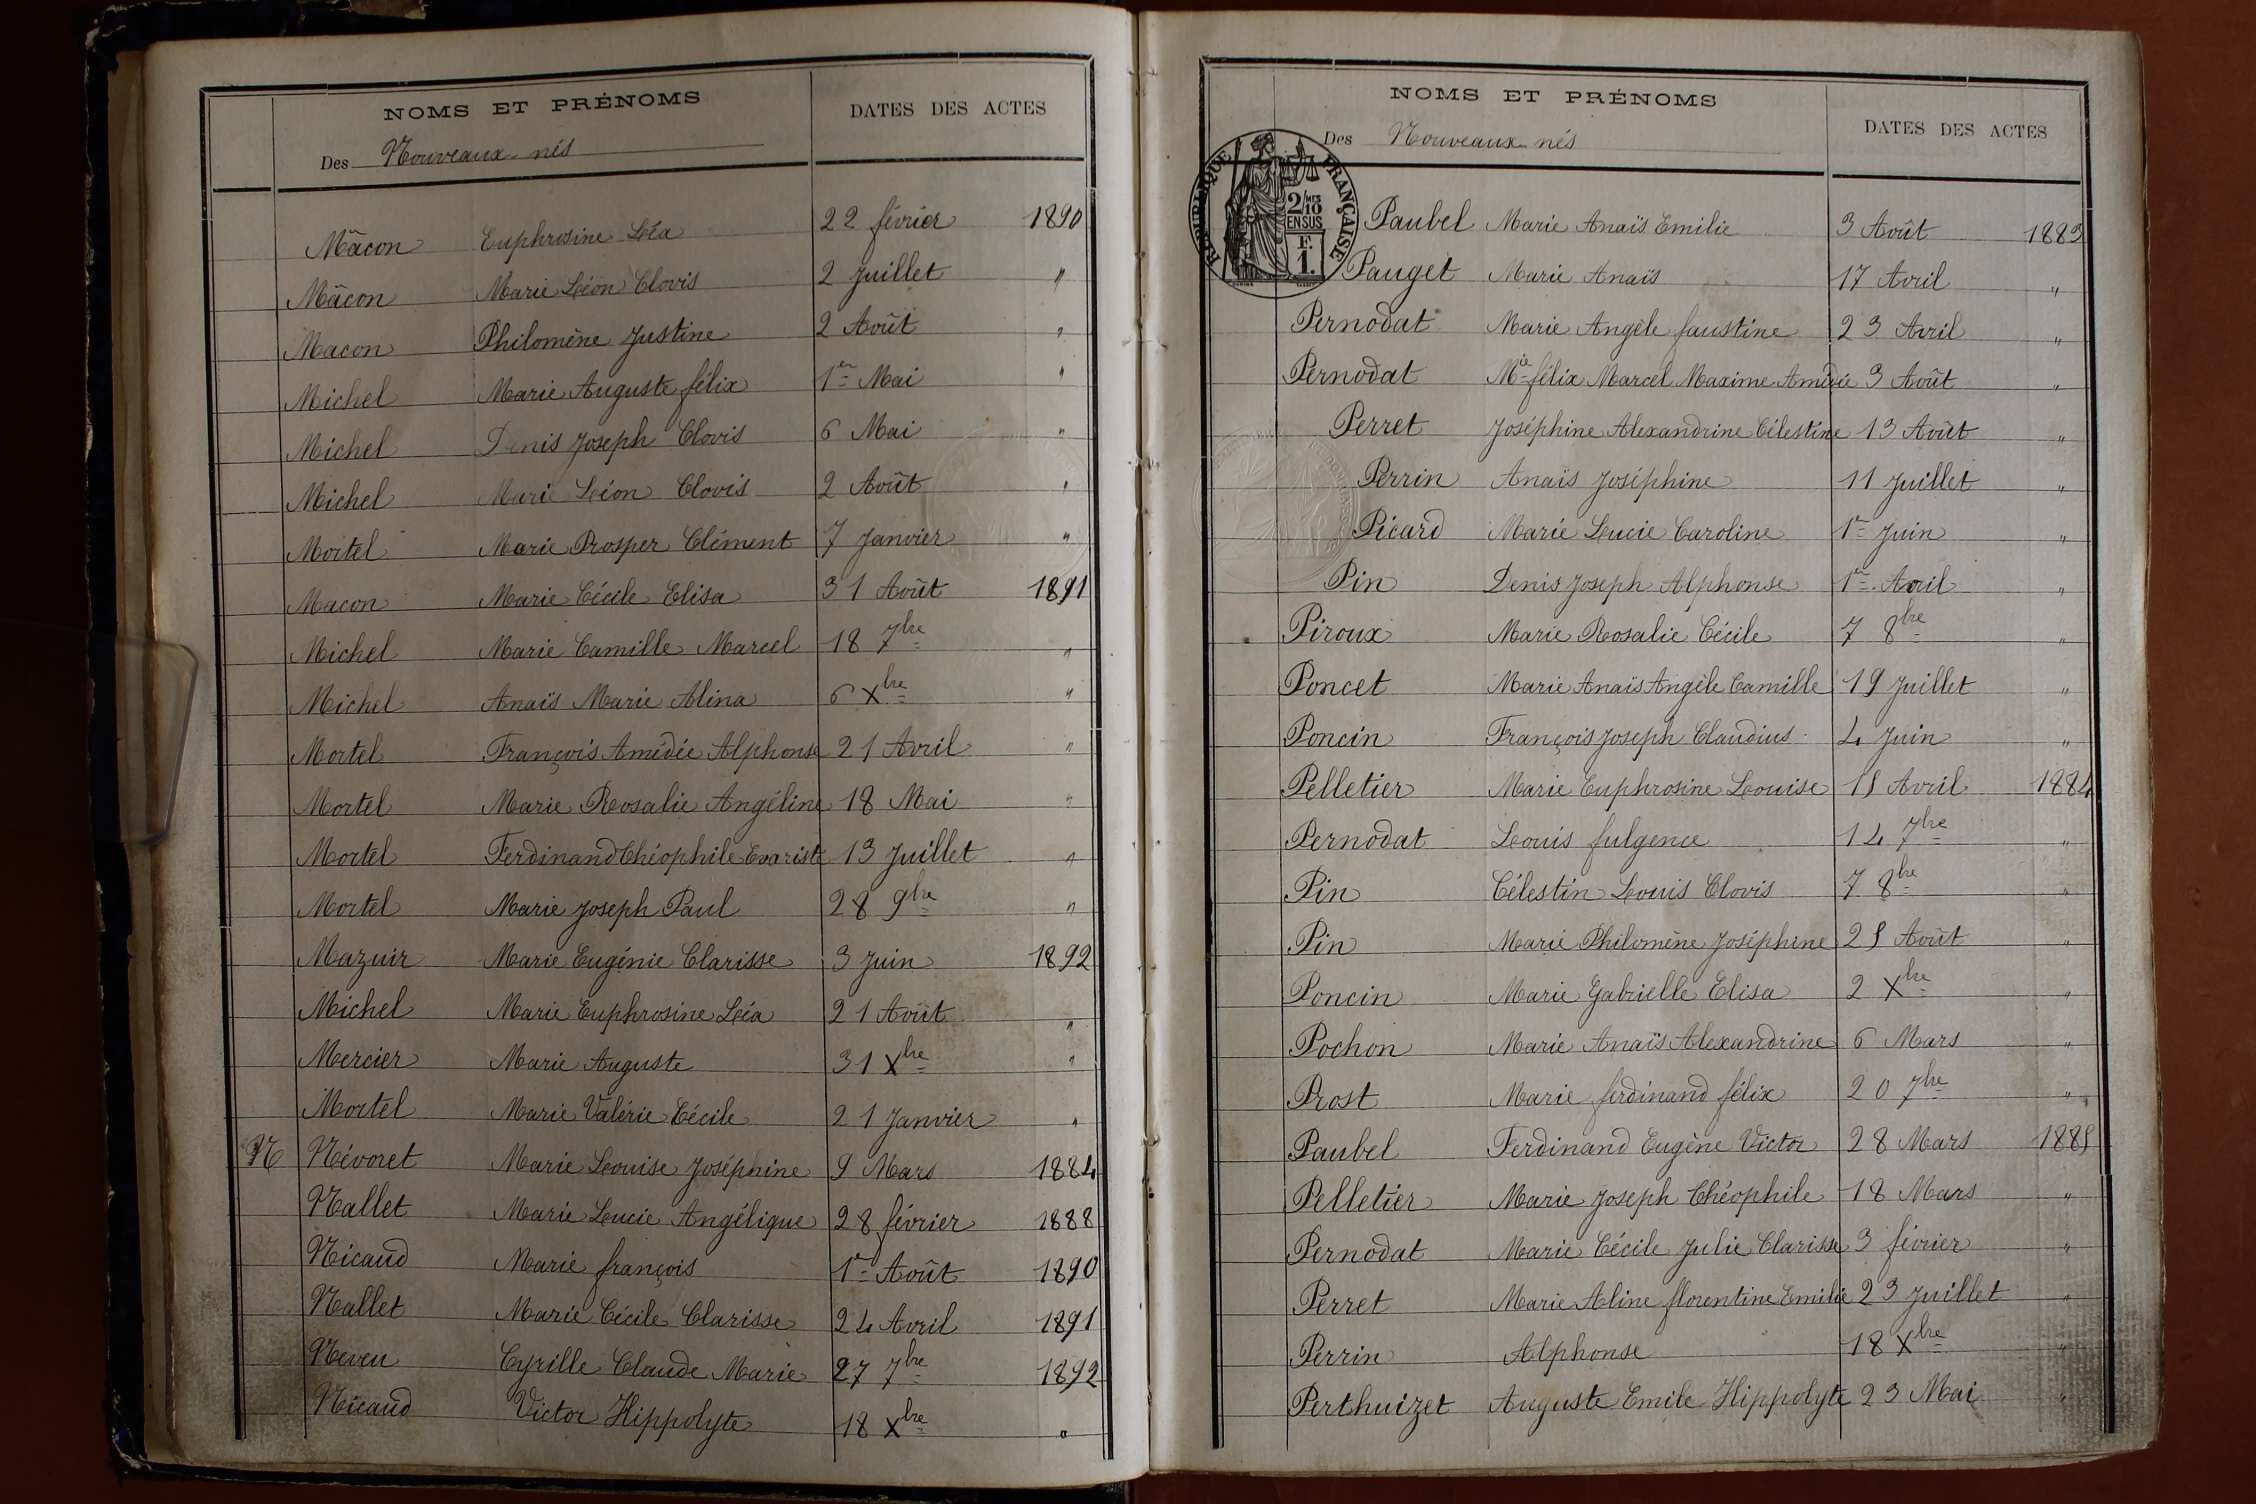 NOMS ET PRÉNOMS DATES DES ACTES
Des Nouveaux-nés
Mâcon Euphrosine Léa 22 février 1890
Mâcon Marie Léon Clovis 2 Juillet "
Macon Philomène Justine 2 Août "
Michel Marie Auguste félix 1er Mai "
Michel Denis Joseph Clovis 6 Mai "
Michel Marie Léon Clovis 2 Août "
Mortel Marie Prosper Clément 7 Janvier "
Macon Marie Cécile Elisa 31 Août 1891
Michel Marie Camille Marcel 18 7bre "
Michel Anaïs Marie Alina 6 Xbre "
Mortel François Amédée Alphonse 21 Avril "
Mortel Marie Rosalie Angéline 18 Mai "
Mortel Ferdinand Théophile Evariste 13 Juillet "
Mortel Marie Joseph Paul 28 9bre "
Mazuir Marie Eugénie Clarisse 3 Juin 1892
Michel Marie Euphrosine Léa 21 Août "
Mercier Marie Auguste 31 Xbre "
Mortel Marie Valérie Cécile 21 Janvier "
N Névoret Marie Louise Joséphine 9 Mars 1884
Nallet Marie Lucie Angélique 28 février 1888
Nicaud Marie françois 1er Août 1890
Nallet Marie Cécile Clarisse 24 Avril 1891
Neveu Cyrille Claude Marie 27 7bre 1892
Nicaud Victor Hippolyte 18 Xbre "
NOMS ET PRÉNOMS DATES DES ACTES
Des Nouveaux-nés
RÉPUBLIQUE FRANÇAISE
2/10 MES
EN SUS
F.
1.
Paubel Marie Anaïs Emilie 3 Août 1883
Pauget Marie Anaïs 17 Avril "
Pernodat Marie Angèle faustine 23 Avril "
Pernodat Mie félix Marcel Maxime Amédée 3 Août "
Perret Joséphine Alexandrine Célestine 13 Août "
Perrin Anaïs Joséphine 11 Juillet "
Picard Marie Lucie Caroline 1er Juin "
Pin Denis Joseph Alphonse 1er Avril "
Piroux Marie Rosalie Cécile 7 8bre "
Poncet Marie Anaïs Angèle Camille 19 Juillet "
Poncin François Joseph Claudius 4 Juin "
Pelletier Marie Euphrosine Louise 15 Avril 1884
Pernodat Louis fulgence 14 7bre "
Pin Célestin Louis Clovis 7 8bre "
Pin Marie Philomène Joséphine 25 Août "
Poncin Marie Gabrielle Elisa 2 Xbre "
Pochon Marie Anaïs Alexandrine 6 Mars "
Prost Marie ferdinand félix 20 7bre "
Paubel Ferdinand Eugène Victor 28 Mars 1885
Pelletier Marie Joseph Théophile 18 Mars "
Pernodat Marie Cécile Julie Clarisse 3 février "
Perret Marie Aline florentine Emilie 23 Juillet "
Perrin Alphonse 18 Xbre "
Perthuizet Auguste Emile Hippolyte 23 Mai "